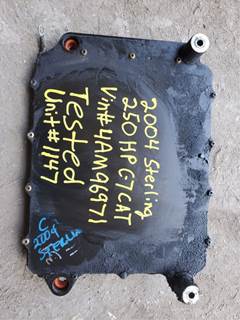 2004 Sterling
250HP C7 CAT
Vin#4AM96971
Tested
Unit#1147
C
2004
STERLIN